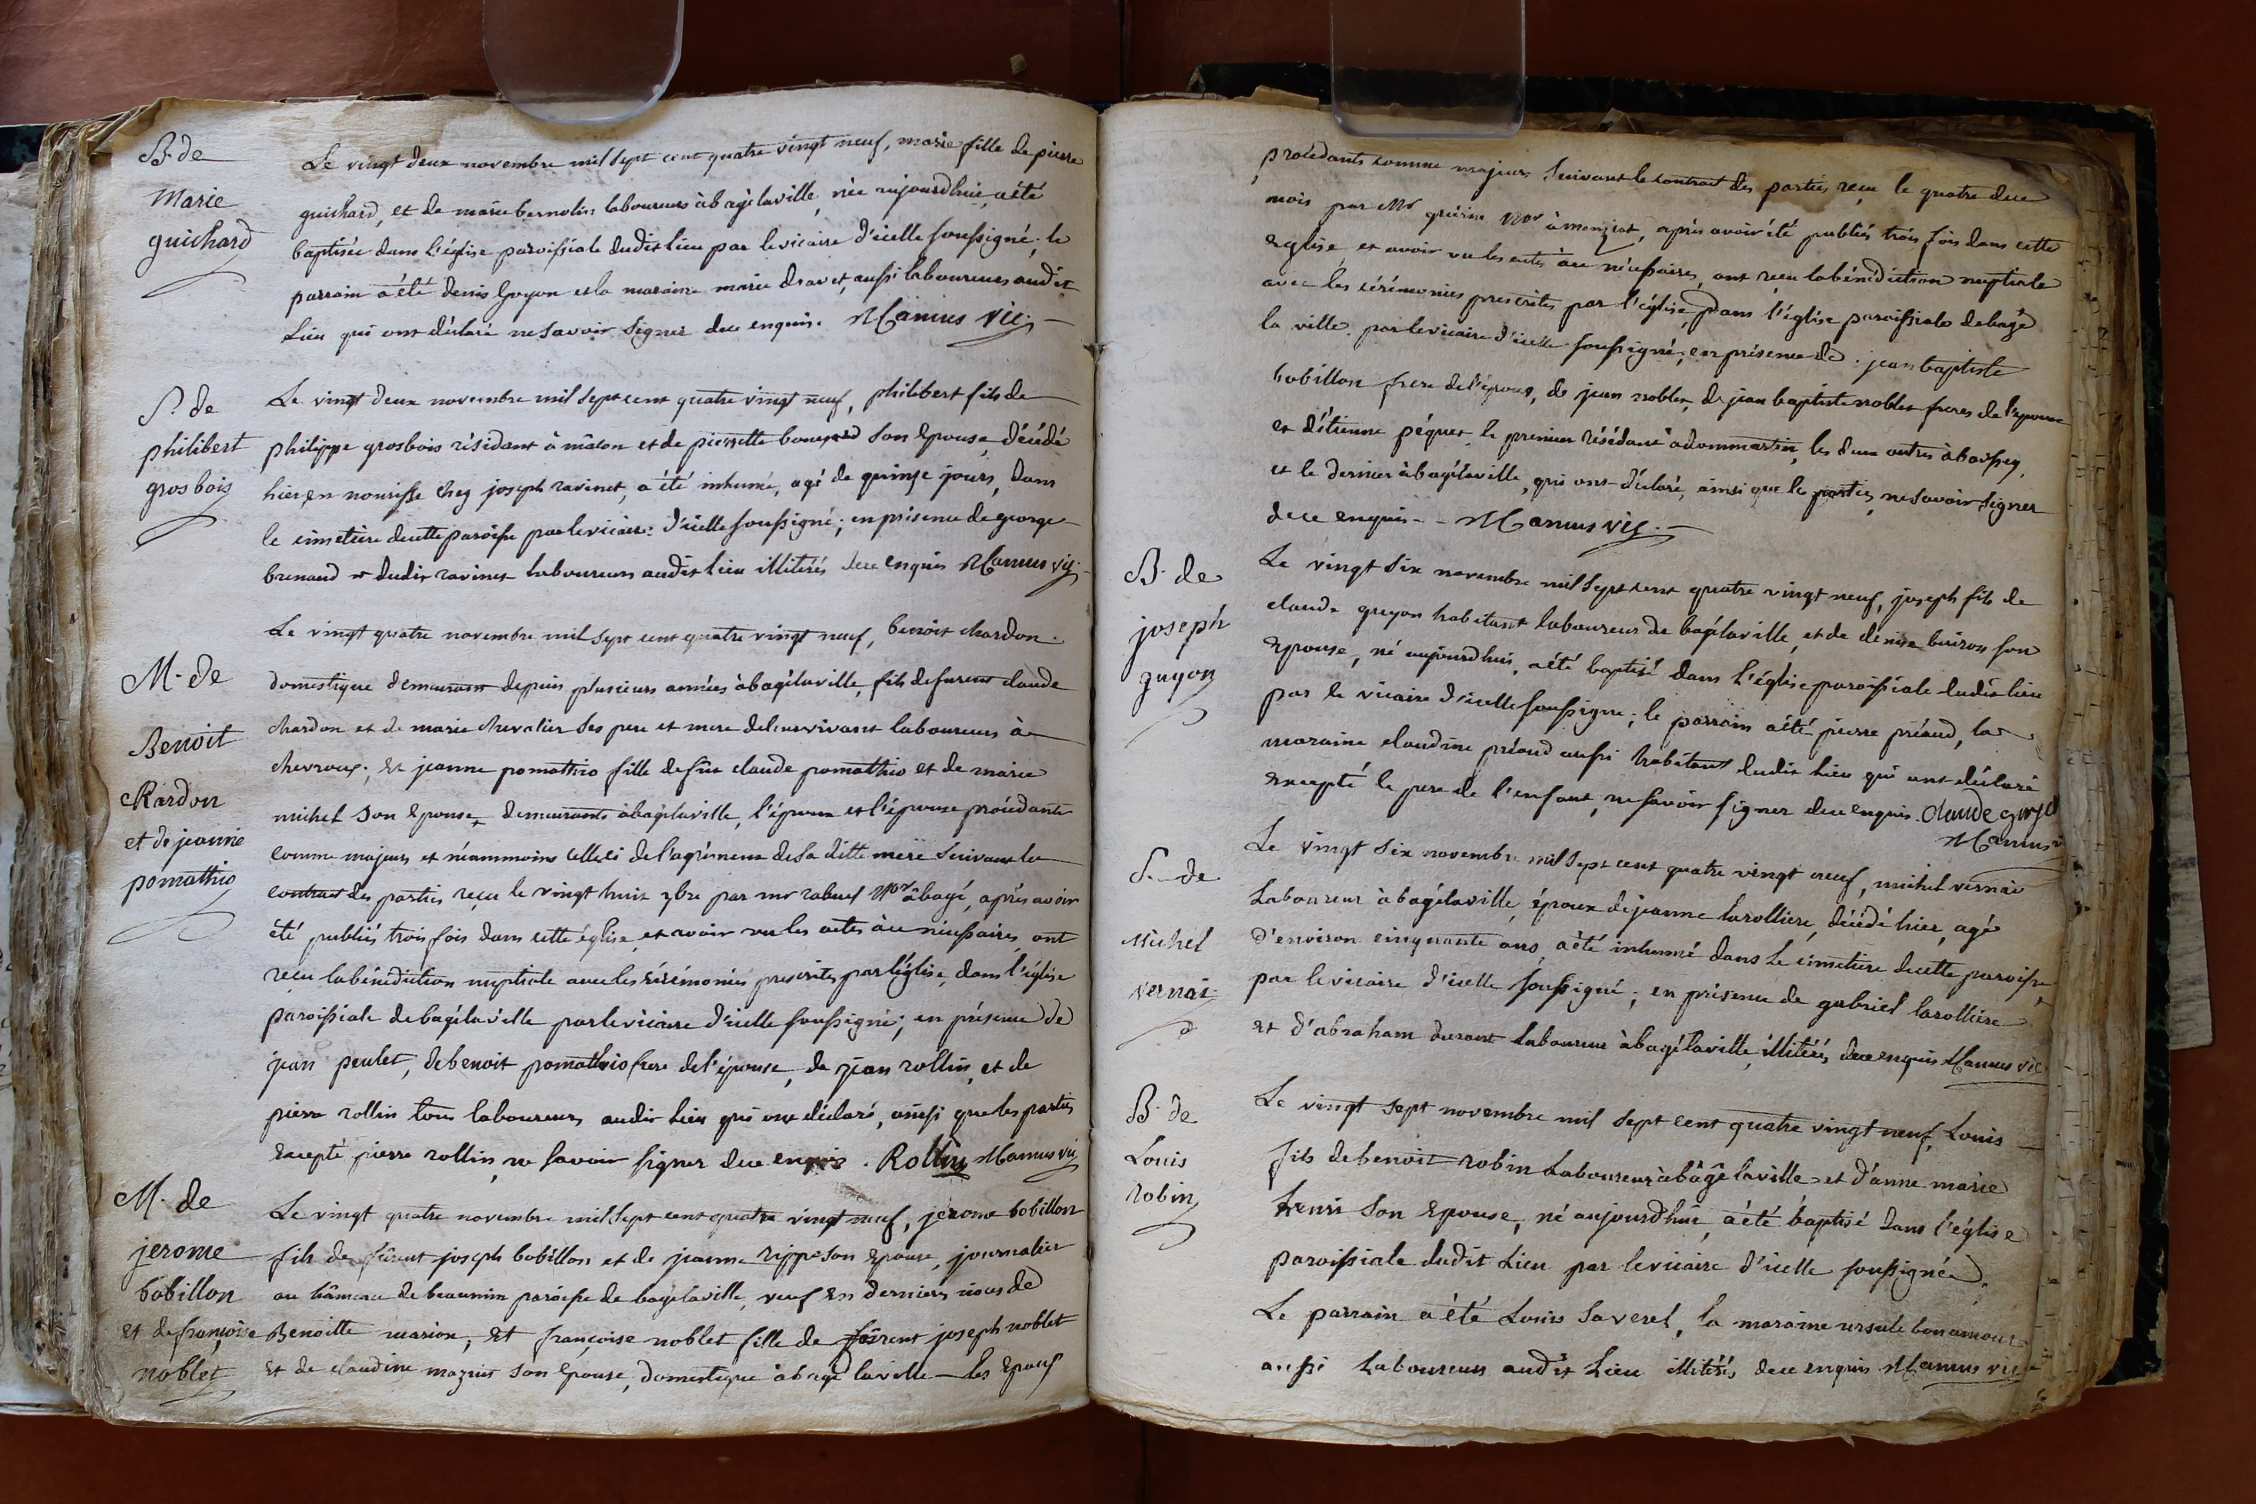 B. de
Marie
guichard
Le vingt deux novembre mil sept cent quatre vingt neuf, marie fille de pierre
guichard, et de marie bernolin laboureurs à bagélaville, née aujourdhui, a été
baptisée dans l'église paroissiale dudit lieu par le vicaire d'icelle soussigné; le
parrain a été denis Goyon et la maraine marie dravet, aussi laboureurs audit
Lieu qui ont déclaré ne savoir signer de ce enquis. Manus vic.
S. de
philibert
grosbois
Le vingt deux novembre mil sept cent quatre vingt neuf, philibert fils de
philippe grosbois résidant à mâcon et de pierrette son Epouse, décédé
hier, en nourisse chez joseph ravinet, a été inhumé, agé de quinze jours, dans
le cimetiere de cette paroisse par le vicaire d'icelle soussigné; en présence de george
brenaud et dudit ravinet laboureurs audit lieu illitérés de ce enquis Manus vic.
M. de
Benoit
Kardon
et de jeanne
pomathio
Le vingt quatre novembre mil sept cent quatre vingt neuf, benoit chardon
domestique demeurant depuis plusieurs années à bagélaville, fils de furent claude
chardon et de marie chevalier ses pere et mere de leur vivant laboureurs à
chevroux; et jeanne pomathio fille de fûe claude pomathio et de marie
michel son Epouse, demeurants à bagélaville, l'époux et l'épouse procédants
comme majeurs et néammoins celle ci de l'agrément de sa ditte mere suivant le
contrat des parties reçu le vingt huit 7bre par mr rabuel Nre à bagé, après avoir
été publiés trois fois dans cette église, et avoir vu les actes à ce nécessaires ont
reçu la bénédiction nuptiale avec les cérémonies prescrites par l'église, dans l'église
paroissiale de bagélaville par le vicaire d'icelle soussigné; en présence de
jean peulet, de benoit pomathio frere de l'épouse, de jean rollin, et de
pierre rollin tous laboureurs audit Lieu qui ont déclaré, ainsi que les parties
Excepté pierre rollin, ne savoir signer de ce enquis. Rollin Manus vic
M. de
jerome
bobillon
et de françoise
noblet
Le vingt quatre novembre mil sept cent quatre vingt neuf, jerome bobillon
fils de fûrent joseph bobillon et de jeanne rippe son epouse, journalier
au hâmeau de beaumin paroisse de bagelaville, veuf en dernieres nôces de
Benoitte marion, et françoise noblet fille de fûrent joseph noblet
et de claudine mazuit son épouse, domestique à bagé laville les Epoux
procédants comme majeurs suivant le contrat des parties reçu le quatre du
mois par Mr guérin Nre à manziat, après avoir été publiés trois fois dans cette
Eglise, et avoir vu les actes à ce nécessaires, ont reçu la bénédiction nuptiale
avec les cérémonies prescrites par l'église, dans l'église paroissiale de bagé
la ville par le vicaire d'icelle soussigné; en présence de jean baptiste
bobillon frere de l'époux, de jean noblet, de jean baptiste noblet freres de l'épouse
et d'étienne péquet, le premier résidant à dommartin, les deux autres à boissey,
et le dernier à bagélaville, qui ont déclaré, ainsi que les parties, ne savoir signer
de ce enquis - Manus vic.
B. de
joseph
guyon
Le vingt six novembre mil sept cent quatre vingt neuf, joseph fils de
claude guyon habitant laboureur de bagélaville, et de denise buiron son
Epouse, né aujourdhui, a été baptisé dans l'église paroissiale dudit lieu
par le vicaire d'icelle soussigné; le parrain a été pierre préaud, la
maraine claudine préaud aussi habitants dudit lieu qui ont déclaré
excepté le pere de l'enfant, ne savoir signer de ce enquis. Claude guyon
Manus
S. de
Michel
vernai
Le vingt six novembre mil sept cent quatre vingt neuf, michel vernai
Laboureur à bagélaville, époux de jeanne larolliere, décédé hier, agé
d'environ cinquante ans, a été inhumé dans le cimetiere de cette paroisse,
par le vicaire d'icelle soussigné; en présence de gabriel larolliere
et d'abraham durant laboureurs à bagélaville, illitérés de ce enquis Manus vic
B. de
Louis
robin
Le vingt sept novembre mil sept cent quatre vingt neuf, Louis
fils de benoit robin Laboureur à bâgé laville et d'anne marie
henri son Epouse, né aujourdhui, a été baptisé dans l'église
paroissiale dudit Lieu par le vicaire d'icelle soussigné.
Le parrain a été Louis Saverel, la maraine ursule bonamour
aussi Laboureurs audit Lieu illitérés de ce enquis Manus vic.